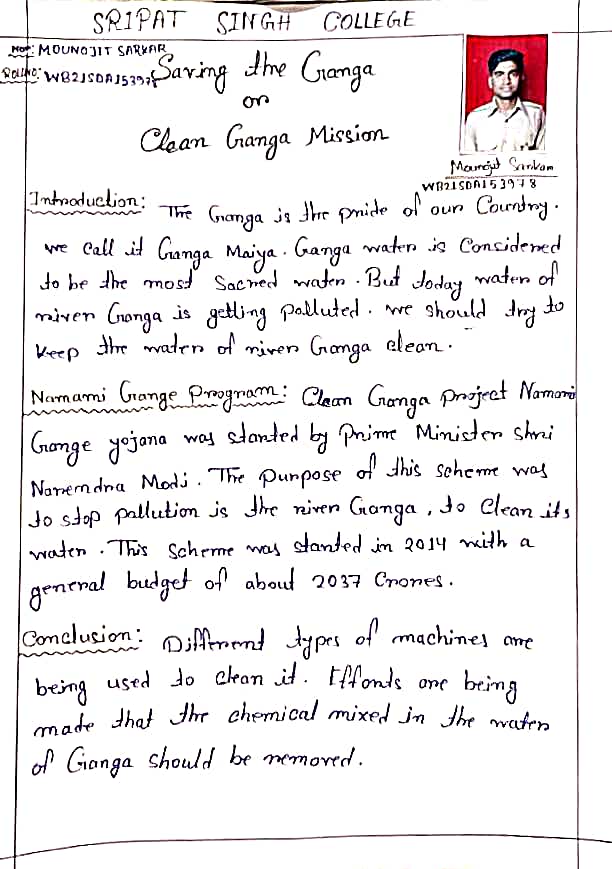 SRIPAT SINGH COLLEGE
NAME: MOUNOJIT SARKAR
ROLL NO: WB21SDA153978
Saving the Ganga
or
Clean Ganga Mission
Mounojit Sarkar
WB21SDA153978
Introduction: The Ganga is the pride of our Country.
we call it Ganga Maiya. Ganga water is Considered
to be the most Sacred water. But today water of
river Ganga is getting polluted. we should try to
keep the water of river Ganga clean.
Namami Gange Program: Clean Ganga project Namami
Gange yojana was started by Prime Minister Shri
Narendra Modi. The purpose of this scheme was
to stop pollution is the river Ganga, to Clean its
water. This Scheme was started in 2014 with a
general budget of about 2037 Crores.
Conclusion: Different types of machines are
being used to clean it. Efforts are being
made that the chemical mixed in the water
of Ganga should be removed.